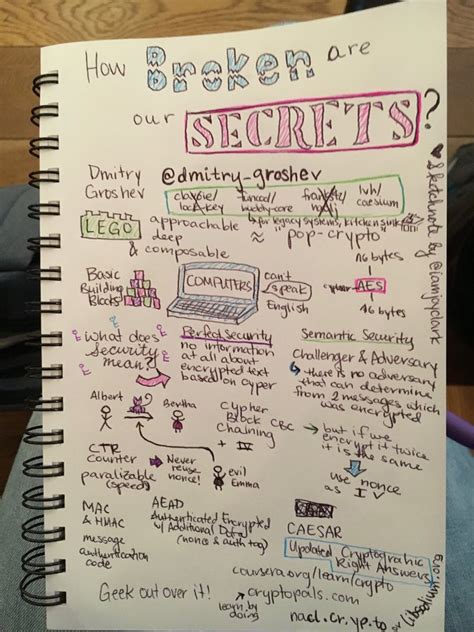 How Broken are
our SECRETS?
♥ Sketchnote by @iamjayclark
Dmitry
Groshev
@dmitry-groshev
funcool/
buddy-core
lvh/
caesium
for legacy systems, kitchen sink
LEGO
approachable
deep
& composable
≈ "pop-crypto"
Basic
Building
Blocks
COMPUTERS
can't
speak
English
16 bytes
cypher
AES
16 bytes
what does
security
mean?
Perfect Security
no information
at all about
encrypted text
based on cyper
Semantic Security
Challenger & Adversary
↳ there is no adversary
that can determine
from 2 messages which
was encrypted
Albert
Bertha
Cypher
Block CBC
Chaining
+ IV
→ but if we
encrypt it twice
it is the same
use nonce
as IV
CTR
counter
→ Never
reuse
nonce!
paralizable
(speed)
evil
Emma
MAC
& HMAC
message
authentication
code
AEAD
Authenticated Encrypted
w/ Additional Data
(nonce & auth tag)
CAESAR
Updated Cryptograhic
Right Answers
coursera.org/learn/crypto
Geek out over it!
cryptopals.com
learn by
doing
nacl.cr.yp.to
or libsodium.org